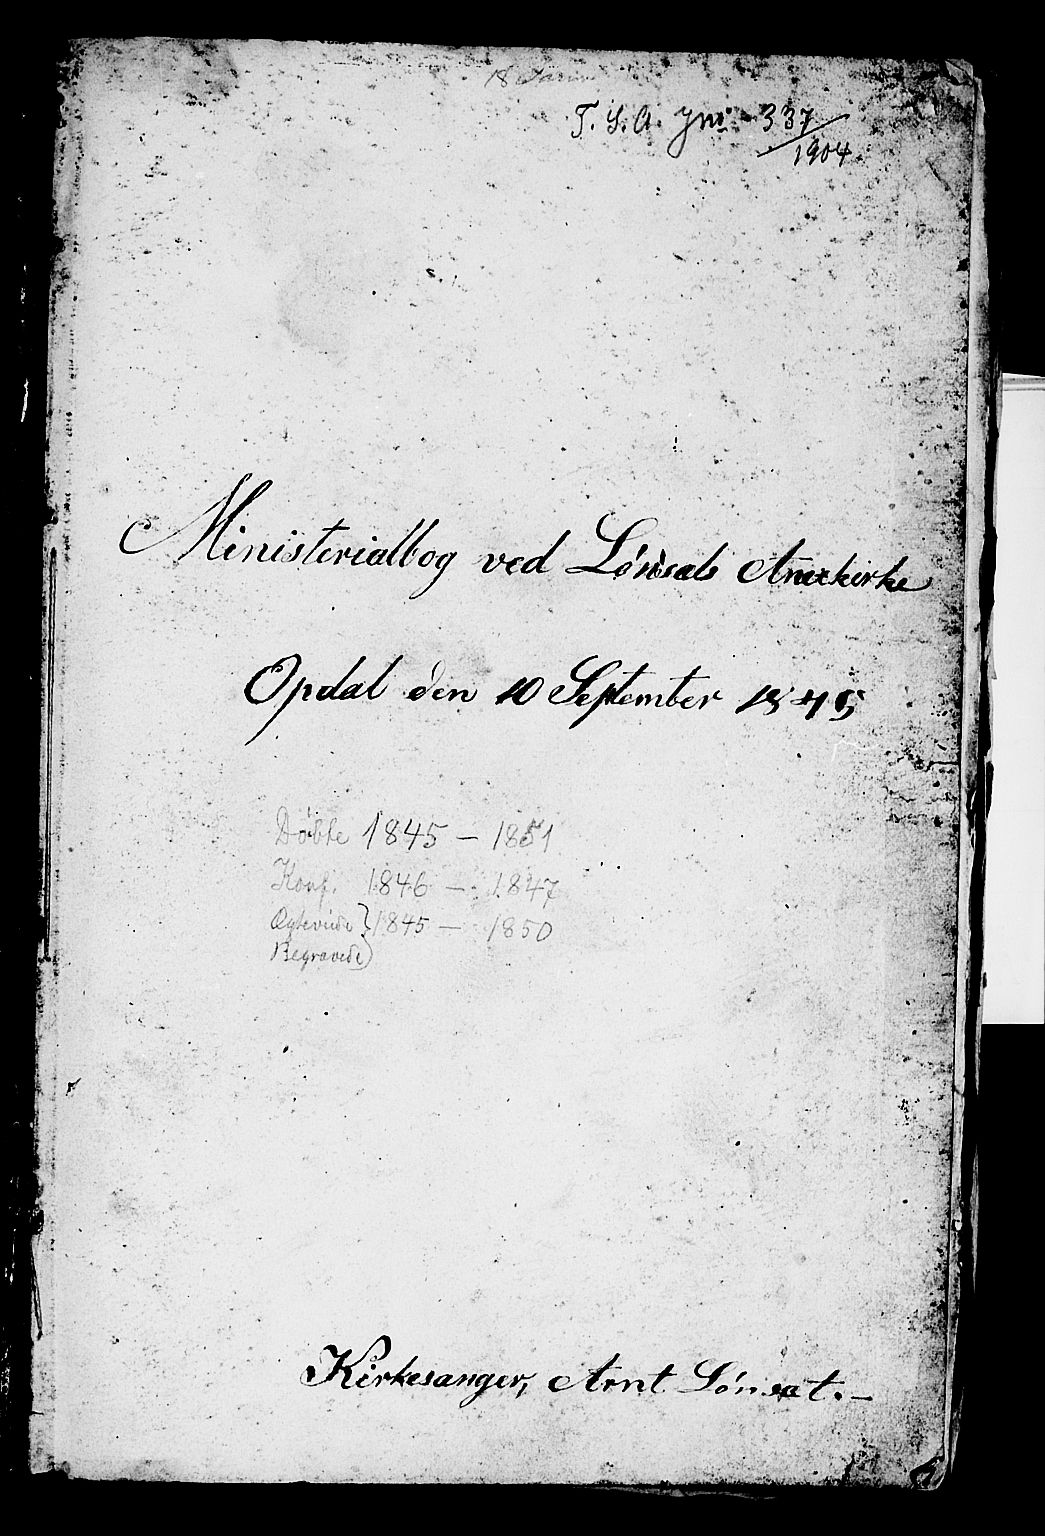 T. S. A. Jnr. 337/1904
Ministerialbog ved Lønsets Anexkirke
Opdal den 10 September 1845
Døbte 1845 – 1851
Konf. 1846 – 1847
Ægteviede } 1845 – 1850
Begravede )
Kirkesanger, Arnt Lønset. –